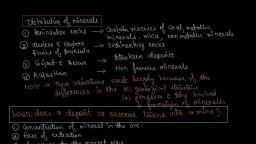 Distribution of minerals
① Peninsular rocks → Contain reserves of coal, metallic minerals, mica, non metallic minerals
② Western & Eastern flanks of peninsula → Sedimentary rocks
③ Gujarat & Assam → Petroleum deposits
④ Rajasthan → Non ferrous minerals
NOTE → These variations exist largely because of the differences in the (a) geological structure
(b) processes & time involved in formation of minerals
When does a deposit or reserve turns into a mine?
① Concentration of mineral in the ore
② Ease of extraction